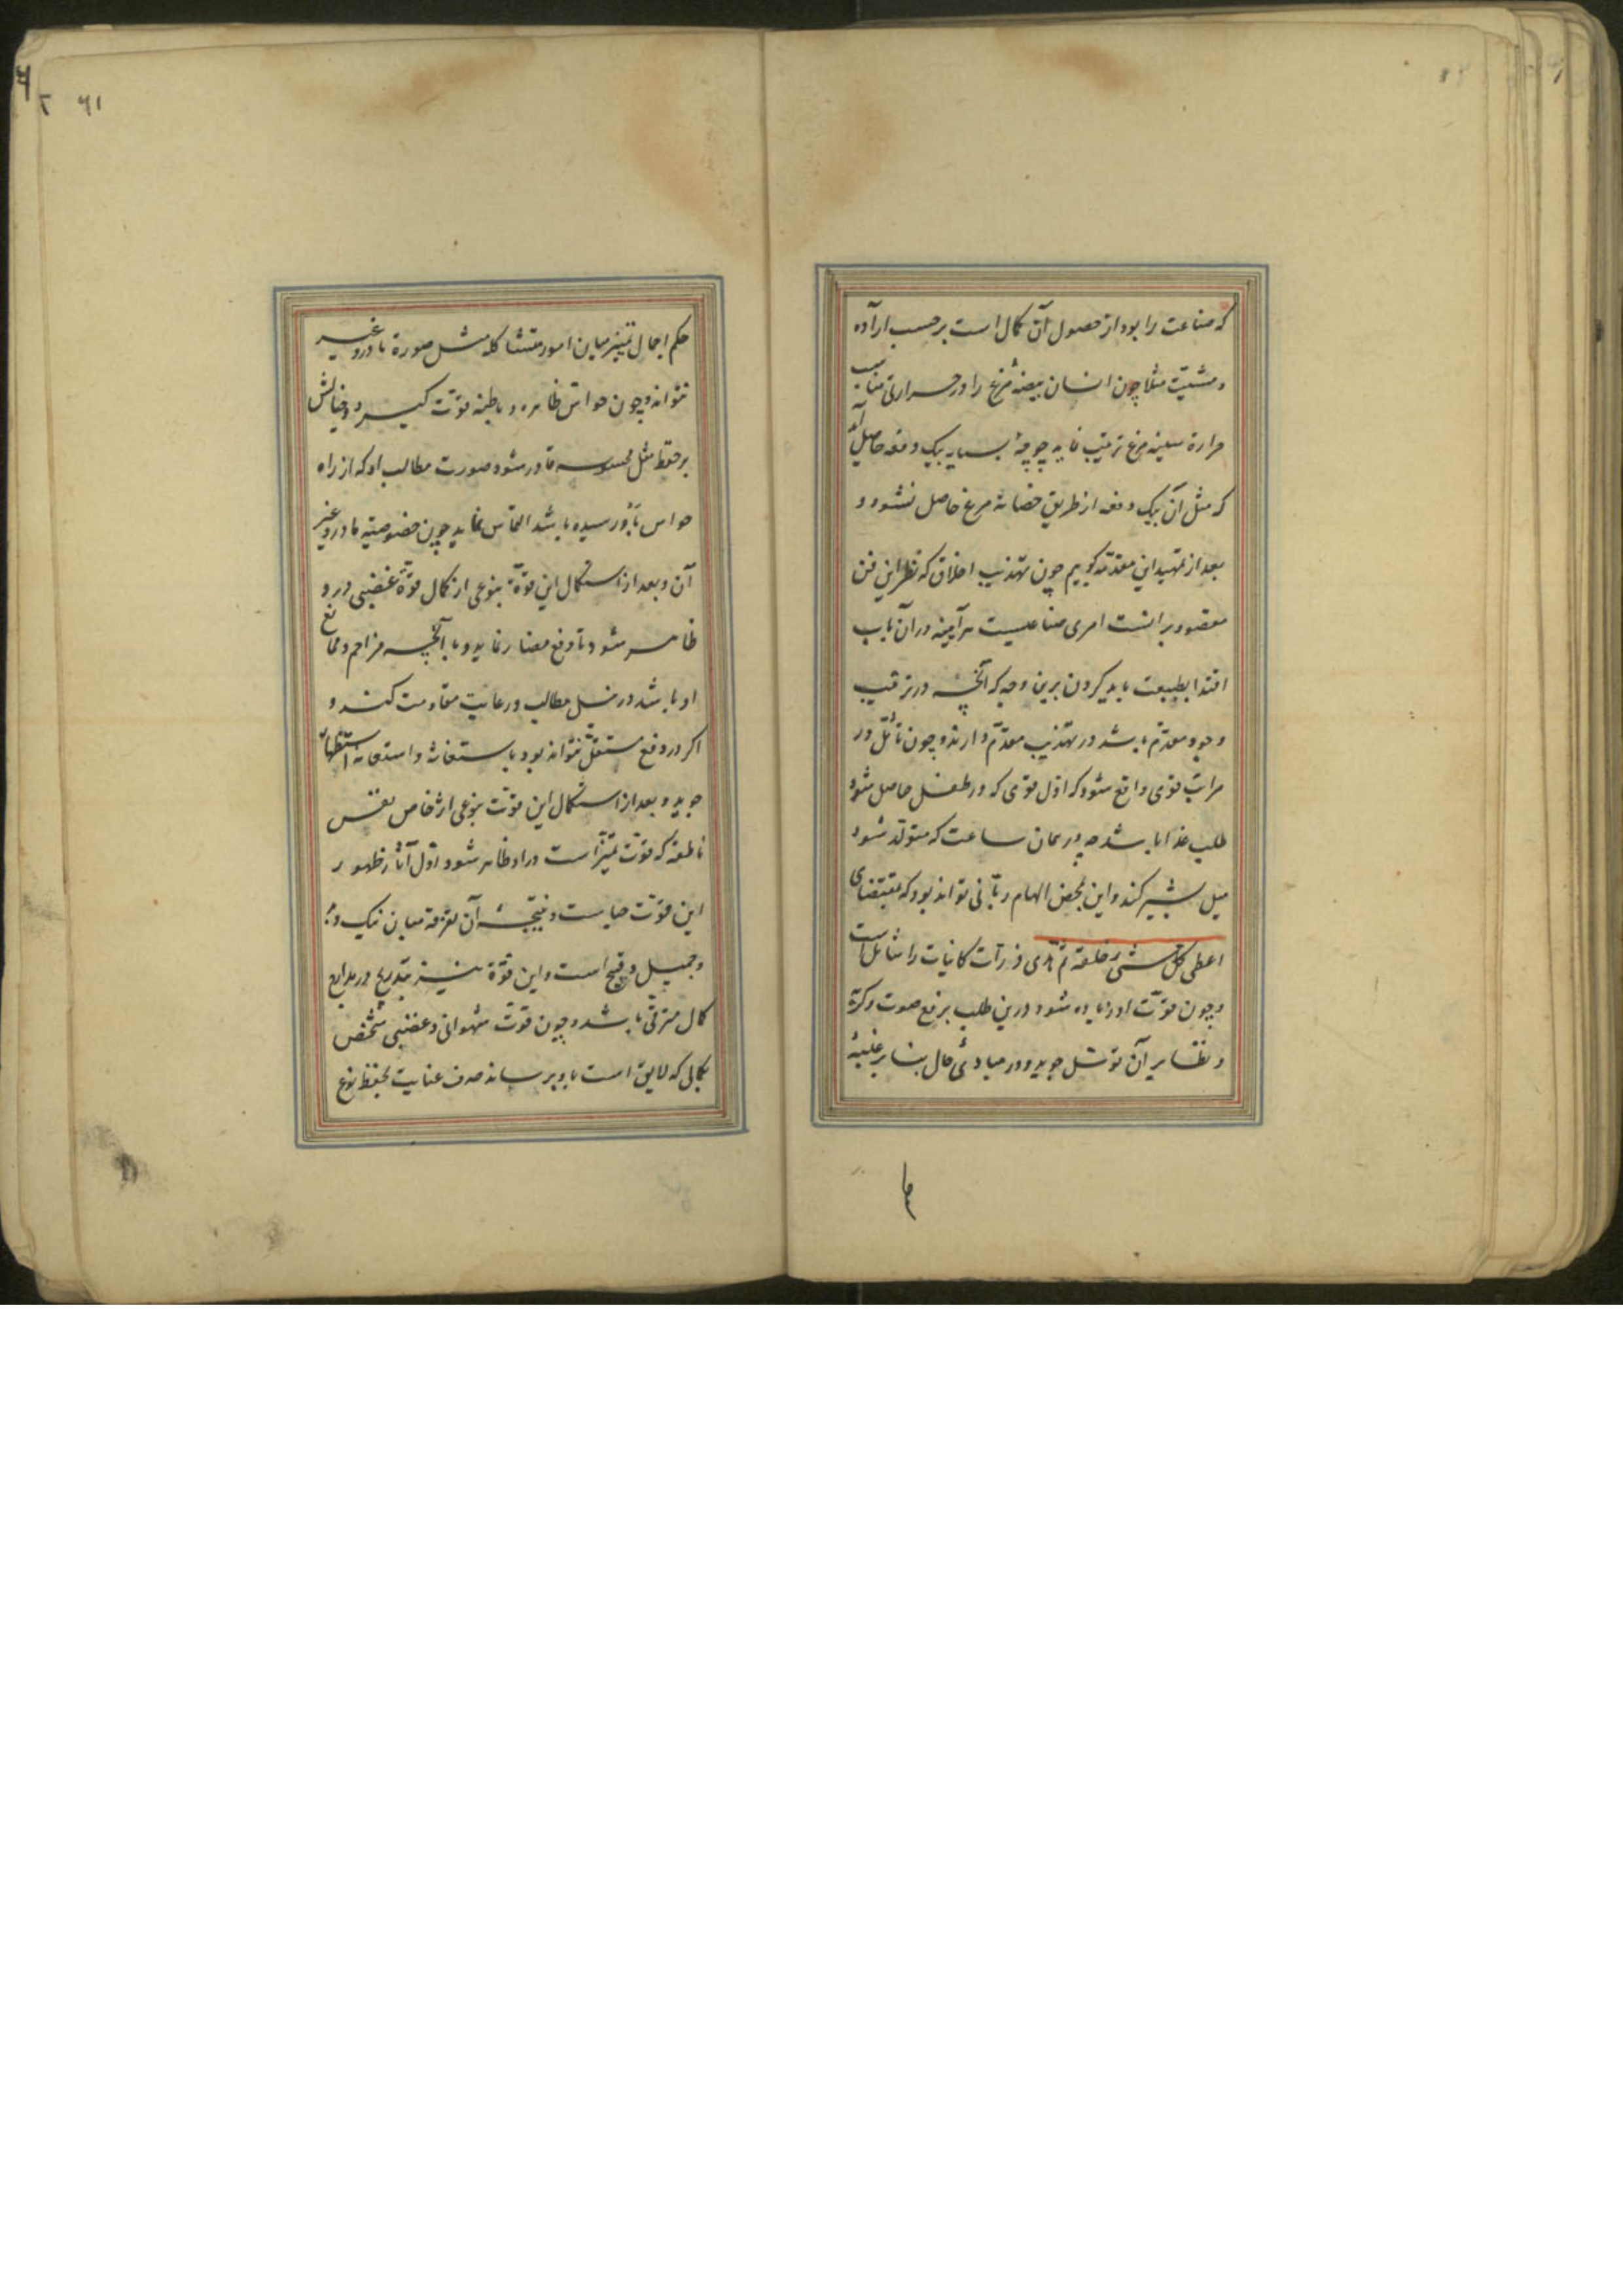 که صناعت را بود از حصول آن کمال است بر حسب اراده
و مشیّت مثلا چون انسان بیضهٔ مرغ را در حرارتی مناسب
حرارة سینه مرغ ترتیب نماید چوچهٔ بسیار بیک دفعه حاصل آید
که مثل آن بیک دفعه از طریق حضانهٔ مرغ حاصل نشود و
بعد از تمهید این مقدّمه گوییم چون تهذیب اخلاق که نظر این فن
مقصور بر انست امری صناعیست هرآینه در آن باب
اقتدا بطبیعت باید کردن برین وجه که آنچه در ترتیب
وجود مقدّم باشد در تهذیب مقدّم دارند و چون تأمّل در
مراتب قوی واقع شود که اوّل قوی که در طفل حاصل شود
طلب غذا باشد چه در همان ساعت که متولّد شود
میل بشیر کند و این بمحض الهام ربّانی تواند بود که بمقتضای
اعطی کلّ شیٔ خلقه ثم هدی ذرّات کاینات را شامل است
و چون قوّت او زیاده شود درین طلب برفع صوت و گریه
و نظایر آن توسّل جوید و در مبادئ حال بنا بر غلبهٔ
حکم اجمال تمییز میان امور متشاکله مثل صورة مادر و غیر
نتواند و چون حواسّ ظاهره و باطنه قوّت گیرد و خیالش
بر حفظ مثل محسوسه قادر شود صورت مطالب او که از راه
حواس بدو رسیده باشد التماس نماید چون خصوصیة مادر و غیر
آن و بعد از استکمال این قوّة بنوعی از کمال قوّة غضبی در و
ظاهر شود تا دفع مضار نماید و با آنچه مزاحم و ممانع
او باشد در نیل مطالب و رعایت مقاومت کند و
اگر در دفع مستقلّ نتواند بود باستغاثه و استعانه استظهار
جوید و بعد از استکمال این قوّت بنوعی اثر خاص نفس
ناطقه که قوّت تمییز است در او ظاهر شود و اوّل آثار ظهور
این قوّت حیاست و نتیجهٔ آن تفرقه میان نیک و بد
و جمیل و قبیح است و این قوّة نیز بتدریج در مدارج
کمال مترقّی باشد و چون قوّت شهوانی و غضبی شخص
بکمالی که لایق است باو برساند صرف عنایت بحفظ نوع